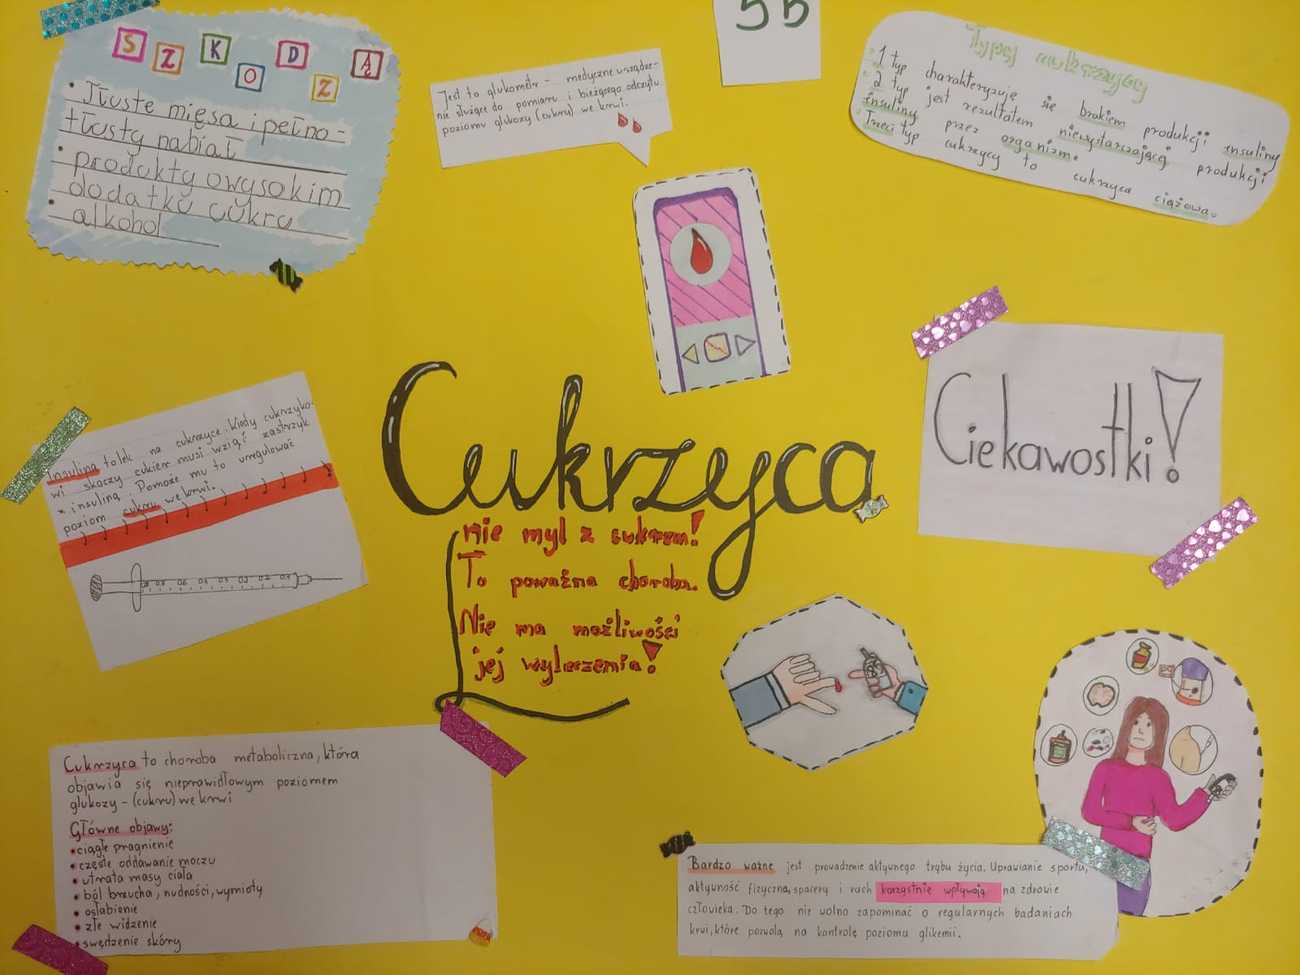 SZKODZĄ
• Tłuste mięsa i pełno-
tłusty nabiał
• produkty o wysokim
dodatku cukru
• alkohol
Jest to glukometr - medyczne urządze-
nie służące do pomiaru i bieżącego odczytu
poziomu glukozy (cukru) we krwi.
55
Typy cukrzycy
1 typ charakteryzuję się brakiem produkcji insuliny
2 typ jest rezultatem niewystarczającej produkcji
insuliny przez organizm.
Trzeci typ cukrzycy to cukrzyca ciążowa.
Insulina to lek na cukrzyce. Kiedy cukrzyko-
wi skoczy cukier musi wziąć zastrzyk
z insuliną. Pomoże mu to uregulować
poziom cukru we krwi.
Cukrzyca
nie myl z cukrem!
To poważna choroba.
Nie ma możliwości
jej wyleczenia!
Ciekawostki!
Cukrzyca to choroba metaboliczna, która
objawia się nieprawidłowym poziomem
glukozy - (cukru) we krwi
Główne objawy:
• ciągłe pragnienie
• częste oddawanie moczu
• utrata masy ciała
• ból brzucha, nudności, wymioty
• osłabienie
• złe widzenie
• swędzenie skóry
Bardzo ważne jest prowadzenie aktywnego trybu życia. Uprawianie sportu,
aktywność fizyczna, spacery i ruch korzystnie wpływają na zdrowie
człowieka. Do tego nie wolno zapominać o regularnych badaniach
krwi, które pozwolą na kontrolę poziomu glikemii.